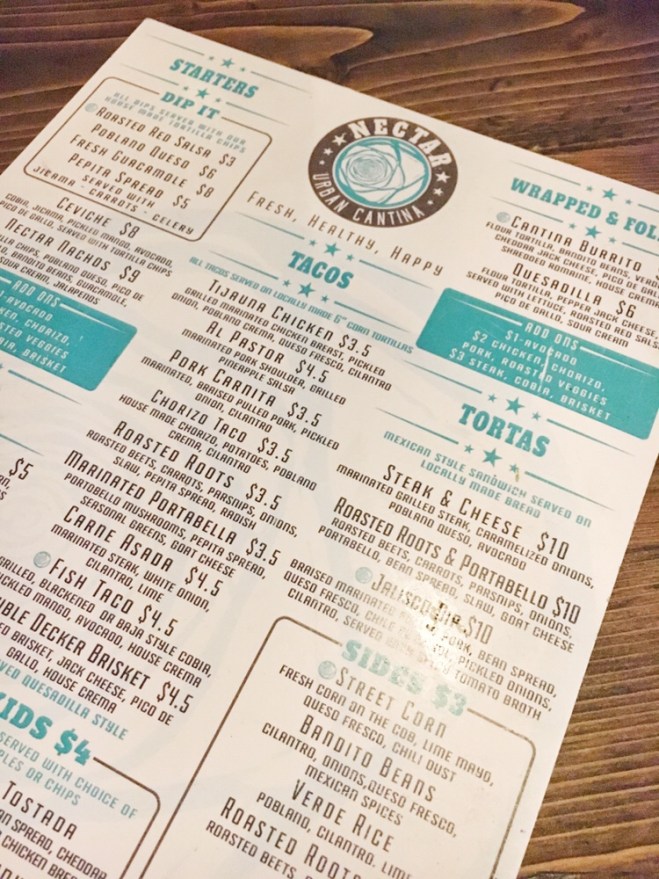 STARTERS
DIP IT
ALL DIPS SERVED WITH OUR
HOUSE MADE TORTILLA CHIPS
ROASTED RED SALSA $3
POBLANO QUESO $6
FRESH GUACAMOLE $8
PEPITA SPREAD $5
SERVED WITH
JICAMA - CARROTS - CELERY
CEVICHE $8
COBIA, JICAMA, PICKLED MANGO, AVOCADO,
PICO DE GALLO, SERVED WITH TORTILLA CHIPS
NECTAR NACHOS $9
CHIPS, POBLANO QUESO, PICO DE
BANDITO BEANS, GUACAMOLE,
SOUR CREAM, JALAPENOS
ADD ONS
AVOCADO
CHORIZO,
VEGGIES
COBIA, BRISKET
$5
NECTAR
URBAN CANTINA
FRESH, HEALTHY, HAPPY
TACOS
ALL TACOS SERVED ON LOCALLY MADE 6" CORN TORTILLAS
TIJAUNA CHICKEN $3.5
GRILLED MARINATED CHICKEN BREAST, PICKLED
ONION, POBLANO CREMA, QUESO FRESCO, CILANTRO
AL PASTOR $4.5
MARINATED PORK SHOULDER, GRILLED
PINEAPPLE SALSA
PORK CARNITA $3.5
MARINATED, BRAISED PULLED PORK, PICKLED
ONION, CILANTRO
CHORIZO TACO $3.5
HOUSE MADE CHORIZO, POTATOES, POBLANO
CREMA, CILANTRO
ROASTED ROOTS $3.5
ROASTED BEETS, CARROTS, PARSNIPS, ONIONS,
SLAW, PEPITA SPREAD, RADISH
MARINATED PORTABELLA $3.5
PORTOBELLO MUSHROOMS, PEPITA SPREAD,
SEASONAL GREENS, GOAT CHEESE
CARNE ASADA $4.5
MARINATED STEAK, WHITE ONION,
CILANTRO, LIME
FISH TACO $4.5
GRILLED, BLACKENED OR BAJA STYLE COBIA,
PICKLED MANGO, AVOCADO, HOUSE CREMA
DECKER BRISKET $4.5
BRISKET, JACK CHEESE, PICO DE
GALLO, HOUSE CREMA
QUESADILLA STYLE
KIDS $4
SERVED WITH CHOICE OF
OR CHIPS
TOSTADA
SPREAD, CHEDDAR
CHICKEN
WRAPPED &
CANTINA BURRITO
FLOUR TORTILLA, BANDITO BEANS,
CHEDDAR JACK CHEESE, PICO DE
SHREDDED ROMAINE, HOUSE
QUESADILLA $6
FLOUR TORTILLA, PEPPER JACK CHEESE,
SERVED WITH LETTUCE, ROASTED RED SALSA
PICO DE GALLO, SOUR CREAM
ADD ONS
$1-AVOCADO
$2 CHICKEN, CHORIZO,
PORK, ROASTED VEGGIES
$3 STEAK, COBIA, BRISKET
TORTAS
MEXICAN STYLE SANDWICH SERVED ON
LOCALLY MADE BREAD
STEAK & CHEESE $10
MARINATED GRILLED STEAK, CARAMELIZED ONIONS,
POBLANO QUESO, AVOCADO
ROASTED ROOTS & PORTABELLO $10
ROASTED BEETS, CARROTS, PARSNIPS, ONIONS,
PORTABELLO, BEAN SPREAD, SLAW, GOAT CHEESE
JALISCO DIP $10
BRAISED MARINATED PORK, BEAN SPREAD,
QUESO FRESCO, CHILE PICKLED ONIONS,
CILANTRO, SERVED WITH TOMATO BROTH
SIDES $3
STREET CORN
FRESH CORN ON THE COB, LIME MAYO,
QUESO FRESCO, CHILI DUST
BANDITO BEANS
CILANTRO, ONIONS, QUESO FRESCO,
MEXICAN SPICES
VERDE RICE
POBLANO, CILANTRO, LIME
ROASTED ROOTS
ROASTED BEETS,